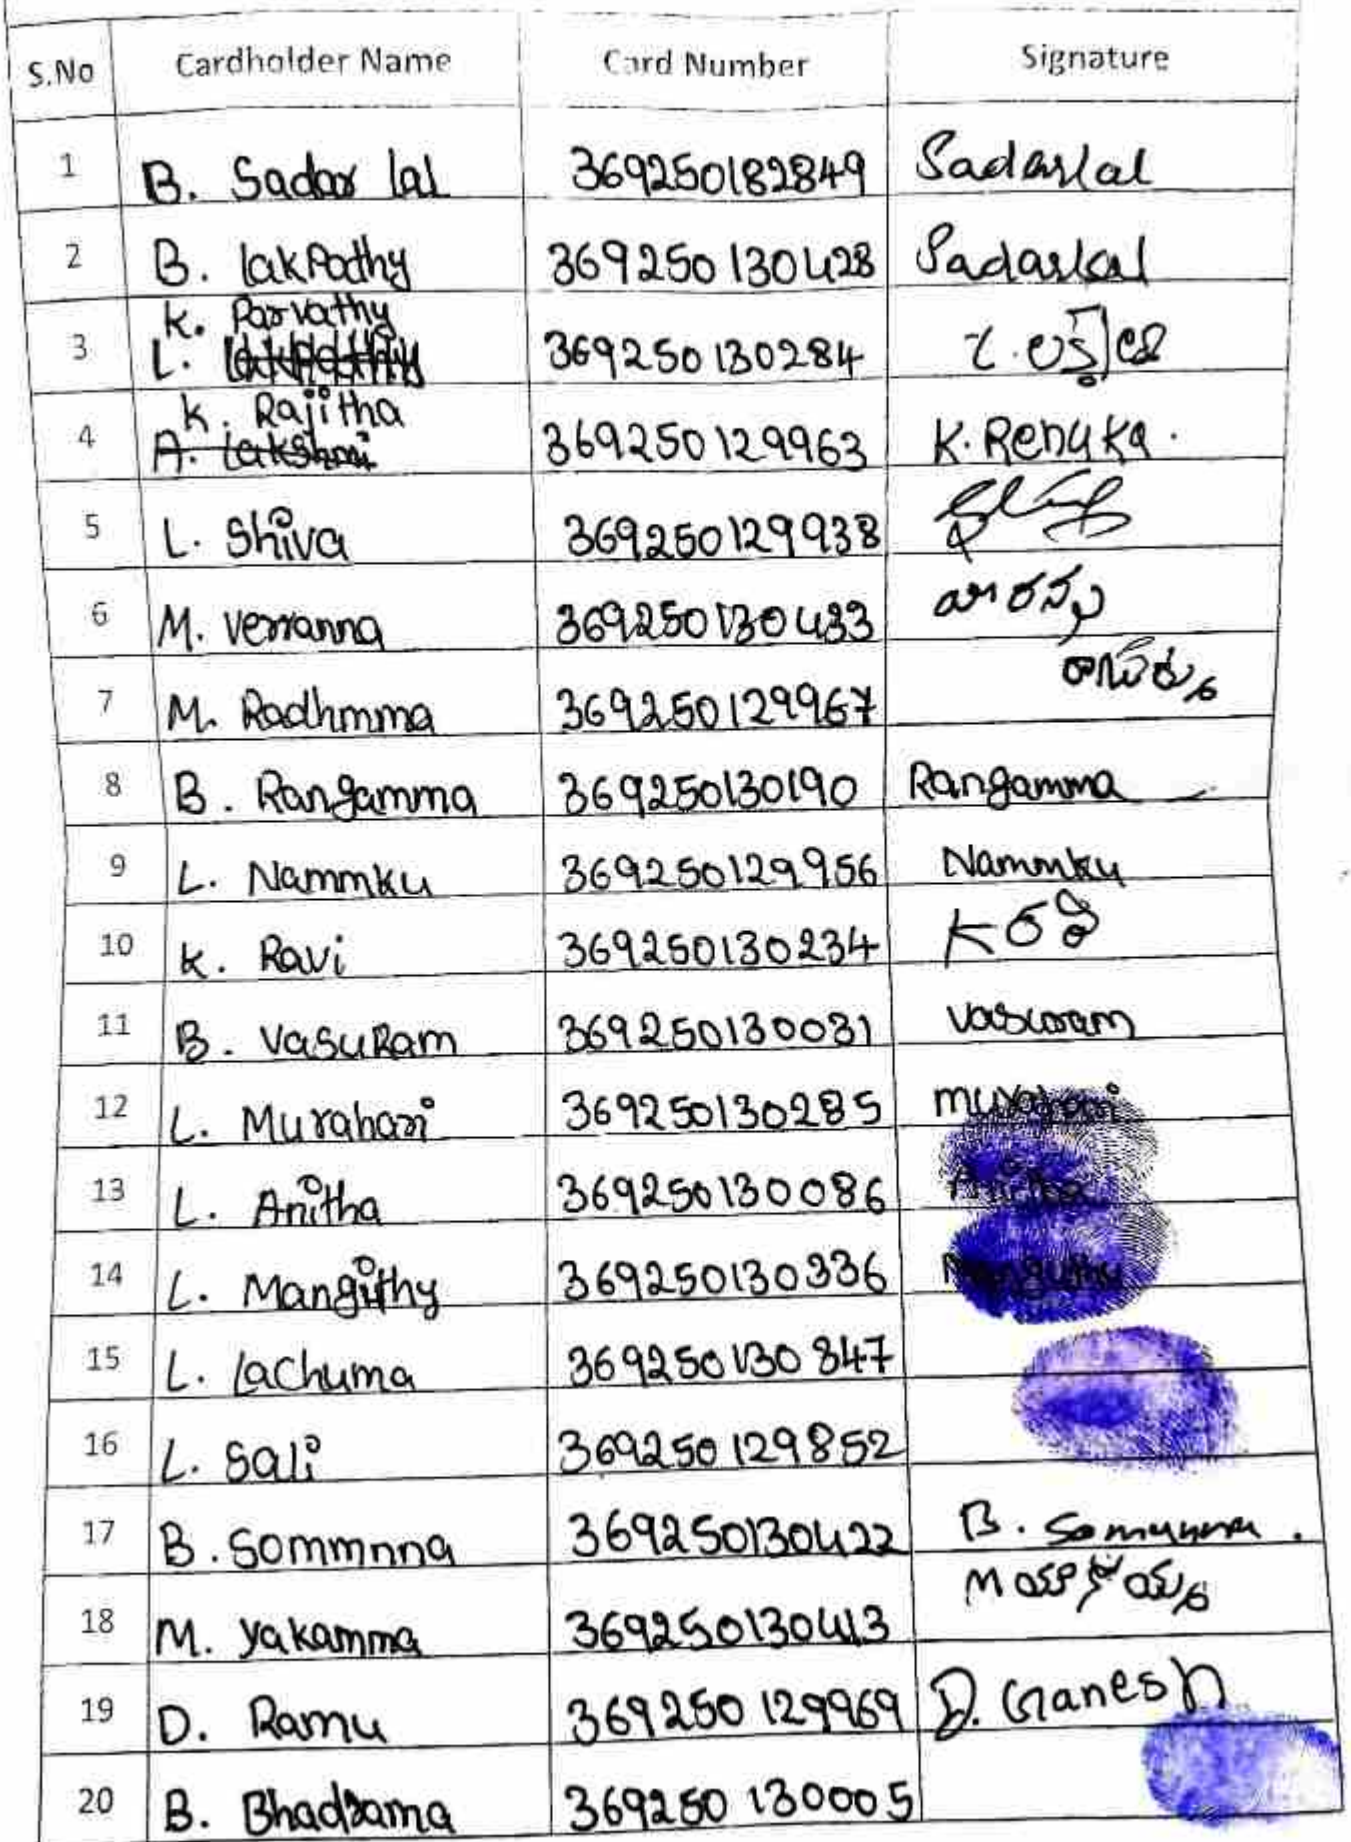 S.No Cardholder Name Card Number Signature
1 B. Sadar lal 369250182849 Sadarlal
2 B. lakpathy 369250130428 Sadarlal
K. Parvathy
3 L. 369250130284
K. Rajitha
4 A. Lakshmi 369250129963 K. Renuka.
5 L. Shiva 369250129938
6 M. Verranna 369250130433
7 M. Radhmma 369250129967
8 B. Rangamma 369250130190 Rangamma
9 L. Nammku 369250129956 Nammku
10 K. Ravi 369250130234 K రవి
11 B. VasuRam 369250130031 Vasuram
12 L. Murahari 369250130285 murahari
13 L. Anitha 369250130086 Anitha
14 L. Manguthy 369250130336 Manguthy
15 L. Lachuma 369250130347
16 L. Sali 369250129852
17 B. Sommnna 369250130422 B.
18 M. Yakamma 369250130413 M
19 D. Ramu 369250129969 D. Ganesh
20 B. Bhadrama 369250130005